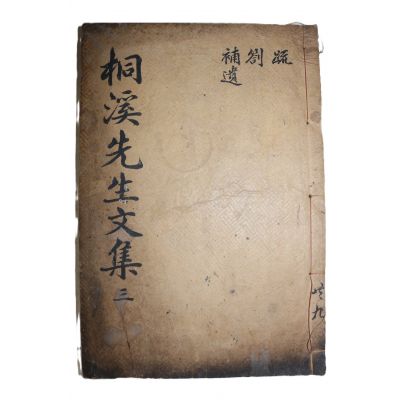 桐溪先生文集 三
疏
劄
補遺
共九